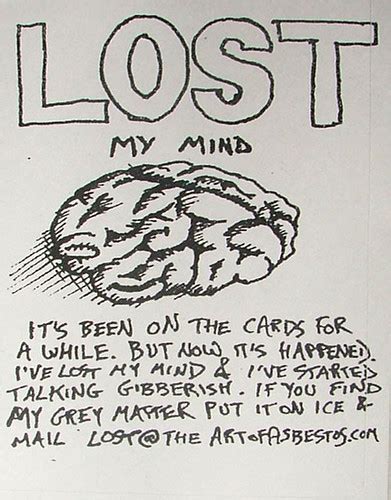 LOST
MY MIND
IT'S BEEN ON THE CARDS FOR
A WHILE. BUT NOW IT'S HAPPENED.
I'VE LOST MY MIND & I'VE STARTED
TALKING GIBBERISH. IF YOU FIND
MY GREY MATTER PUT IT ON ICE &
MAIL LOST@THEARTOFASBESTOS.COM